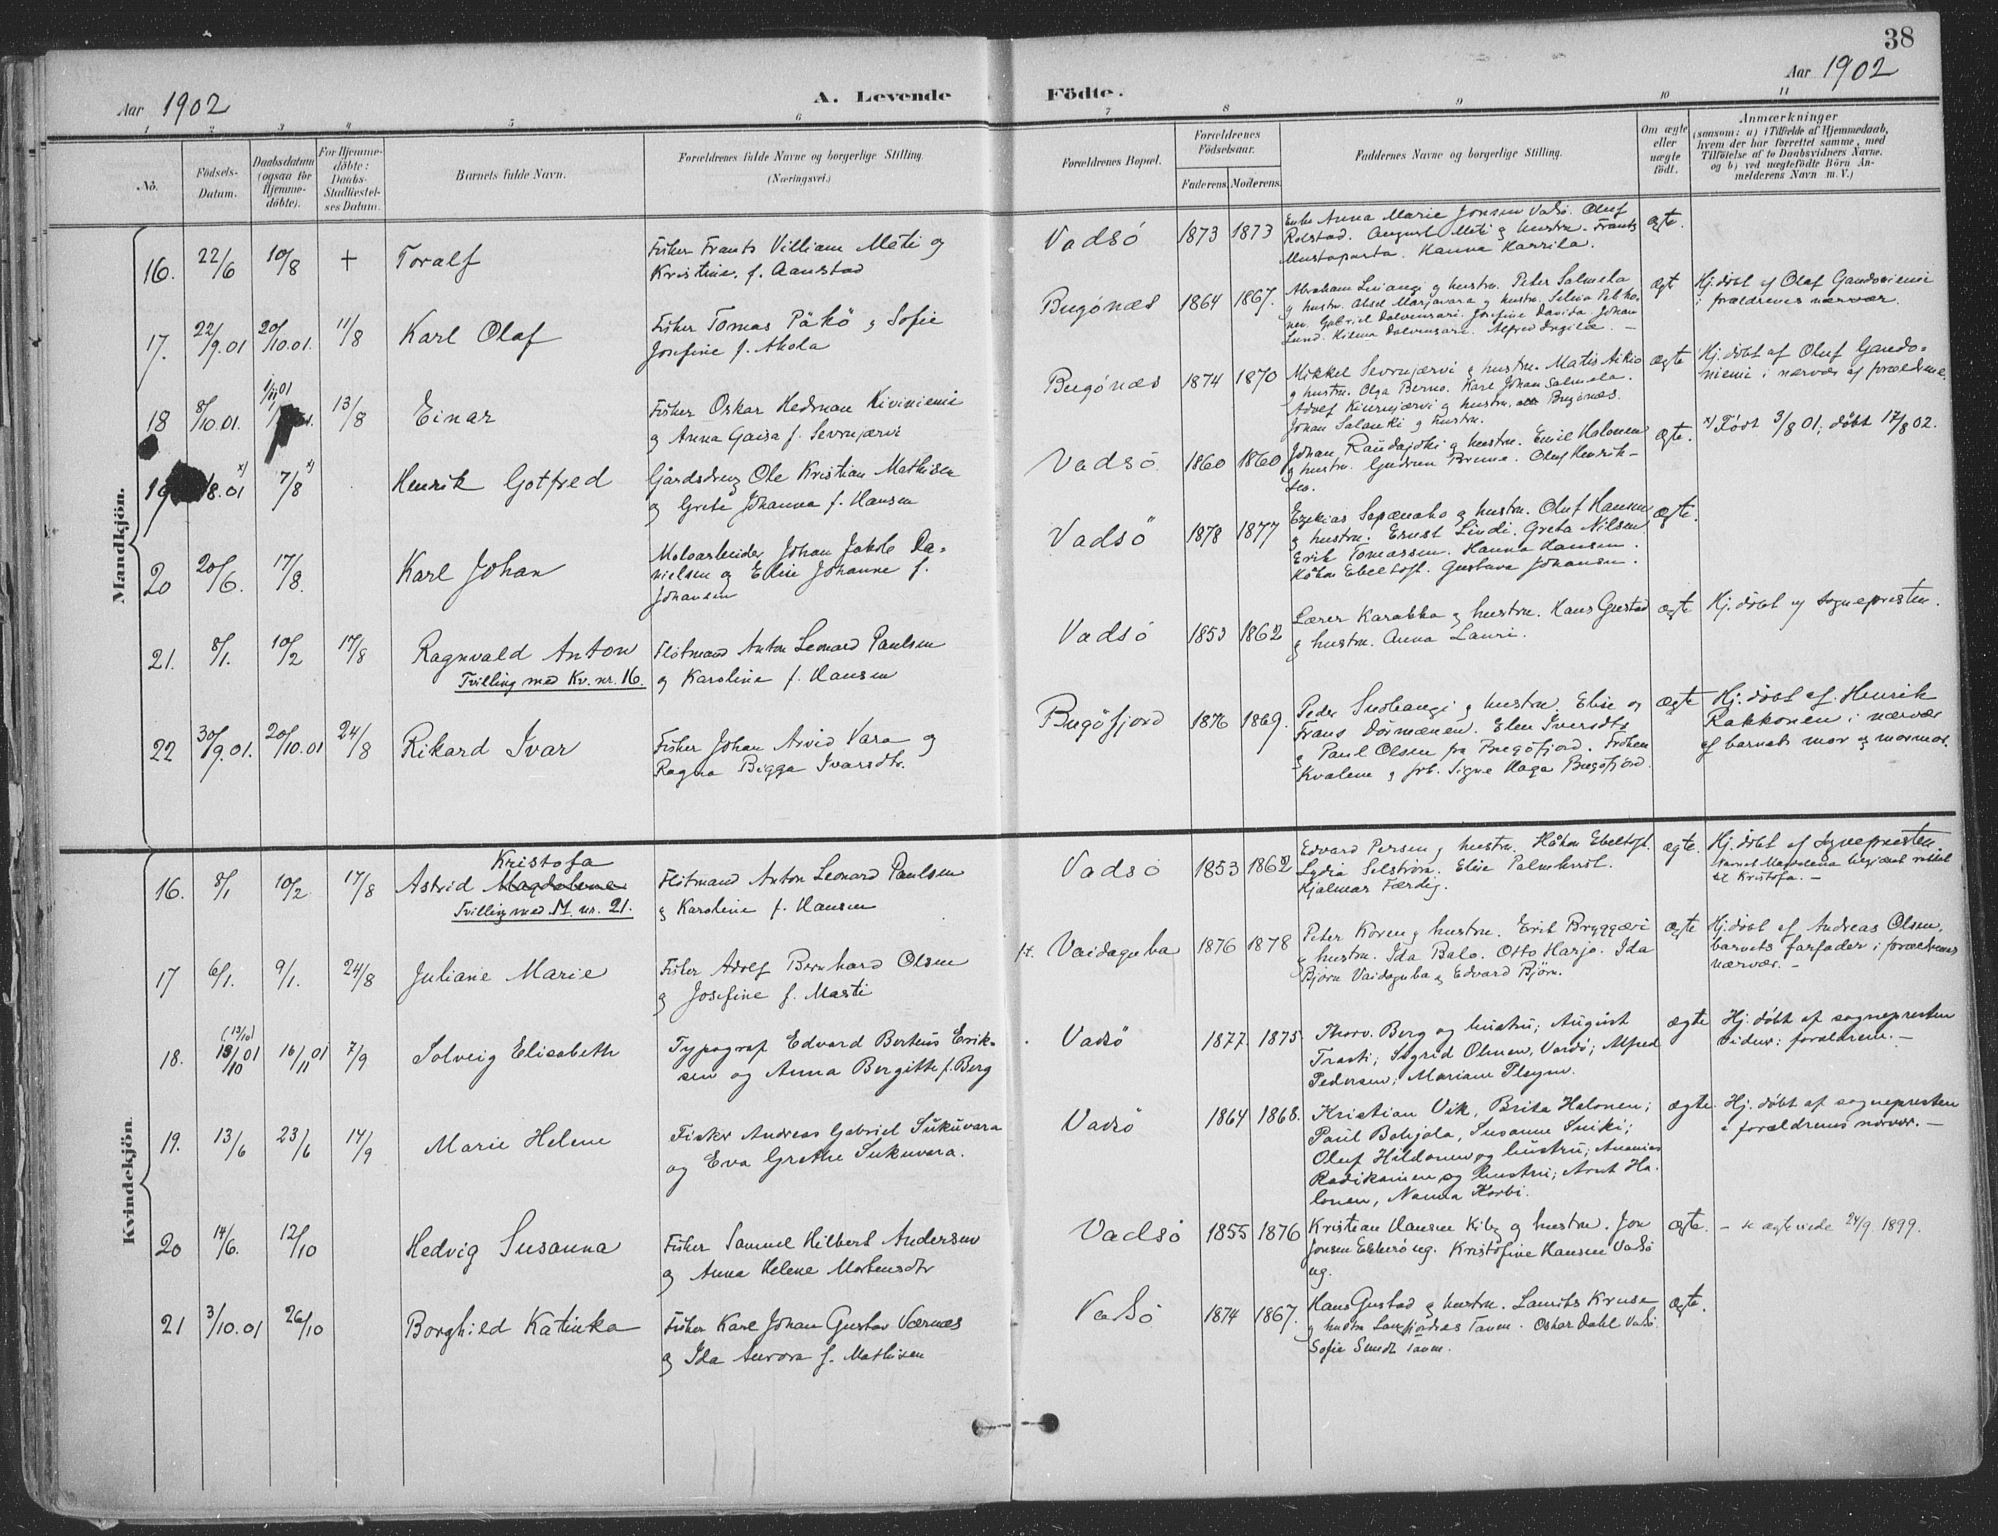 38
Aar 1902 A. Levende Födte. Aar 1902
1 2 3 4 5 6 7 8 9 10 11
No.
Födsels-Datum.
Daabsdatum (ogsaa for Hjemme-döbte).
For Hjemme-döbte: Daabs-Stadfæstel-ses Datum.
Barnets fulde Navn.
Forældrenes fulde Navne og borgerlige Stilling. (Næringsvei.)
Forældrenes Bopæl.
Forældrenes Födselsaar.
Faderens. Moderens.
Faddernes Navne og borgerlige Stilling.
Om ægte eller uægte födt.
Anmærkninger
(saasom: a) i Tilfælde af Hjemmedaab, hvem der har forrettet samme, med Tilföielse af to Daabsvidners Navne. og b) ved uægtefödte Börn An-melderens Navn m. V.)
Mandkjön.
16. 22/6 10/8 + Toralf
Fisker Frants Villiam Meti og
Kristine f. Aanstad
Vadsö 1873 1873
Enke Anna Marie Jonsen Vadsö. Oluf
Rolstad. August Meti og hustru. Frants
Mustaparta. Hanna Harrila.
ægte.
17. 22/9.01 20/10.01. 11/8 Karl Olaf
Fisker Tomas Päkö og Sofie
Josefine f. Akola
Bugönæs 1864 1867.
Abraham Liniangi og hustru. Peter Salmela
og hustru. Absel Marjavara og hustru. Selma
Gabriel Dolvensari. Josefine Davida Johan
Lund. Hilma Dolvensari. Alfred
ægt
Hj. döbt af Olaf Gandoniemi
i forældrenes nærvær.
18 8/10.01. 1/11 01 13/8 Einar
Fisker Oskar Hedman Kiviniemi
og Anna Gaisa f. Sevrnjærvi
Bugönæs 1874 1870
Mikkel Sevrnjærvi og hustru. Matis Aikio
og hustru. Olga Berno. Karl Johan Salmela.
Adolf Kinrnjærvi og hustru. alle Bugönæs.
Johan Salanki og hustru.
ægte
Hj. döbt af Oluf Gando-
niemi i nærvær af forældrene.
19 /8.01 x) 7/8 x) Henrik Gotfred
Gårdsdreng Ole Kristian Mathisen
og Grete Johanna f. Hansen
Vadsö 1860 1860
Johan Raudajoki og hustru. Emil Halonen
og hustru. Gudrun Brune. Oluf Henrik-
sen.
ægte.
x) Födt 3/8 01, döbt 17/8 02.
20 20/6. 17/8. Karl Johan
Moloarbeider Johan Jakob Da-
nielsen og Elise Johanne f.
Johansen
Vadsö 1878 1877
Ezekias Sapænaho og hustru. Oluf Hansen
og hustru. Ernst Lindi. Greta Nilsen
Erik Tomassen. Hanna Hansen.
Håkon Ebeltoft. Gustava Johansen.
ægte.
21. 8/1. 10/2 17/8 Ragnvald Anton
Tvilling med Kv. nr. 16.
Flötmand Anton Leonard Paulsen
og Karoline f. Hansen
Vadsö 1853 1862
Lærer Karabka og hustru. Hans Gustad
og hustru. Anna Lauri.
ægte
Hj. döbt af sognepresten.
22 30/9.01. 20/10.01 24/8 Rikard Ivar
Fisker Johan Arvid Vara og
Ragna Bigga Ivarsdtr.
Bugöfjord 1876 1869.
Peder Suolangi og hustru Elise og
Frans Dörmænen. Elen Iversdtr
og Paul Olsen fra Bugöfjord. Fröken
Kvalene og frk. Signe Haga Bugöfjord.
ægte
Hj. döbt af Henrik
Rakkonen i nærvær
af barnets mor og mormor.
Kvindekjön.
16. 8/1 10/2 17/8
Kristofa
Astrid Magdalena
Tvilling med M. nr. 21.
Flötmand Anton Leonard Paulsen
og Karoline f. Hansen
Vadsö 1853 1862
Edvard Persen og hustru. Håkon Ebeltoft.
Lydia Selström. Elise Palmkvist.
Hjalmar Færdig.
ægte.
Hj. döbt af sognepresten.
navnet Magdalena begjæret rettet
til Kristofa. —
17 6/1. 9/1. 24/8 Juliane Marie
Fisker Adolf Bernhard Olsen
og Josefine f. Masti
Vaidaguba 1876 1878
Peter Koren og hustru. Erik Bryggæri
og hustru. Ida Balo. Otto Harjo. Ida
Björn Vaidaguba og Edvard Björn.
ægte
Hj. döbt af Andreas Olsen,
barnets farfader i forældrenes
nærvær. —
18. (13/10) 13/10 01 16/11 01 7/9 Solveig Elisabeth
Typograf Edvard Berteus Erik-
sen og Anna Bergitte f. Berg
Vadsö 1877 1875.
Thorv. Berg og hustru; August
Trasti; Sigrid Olmen, Vardö; Alfred
Pedersen; Mariane Plsyn.
ægte
Hj. döbt af sognepresten
vidner: forældrene. —
19. 13/6 23/6 14/9 Marie Helene
Fisker Andreas Gabriel Sukuvara
og Eva Grethe Sukuvara.
Vadsö 1864 1868.
Kristian Vik, Brita Halonen;
Paul Bohjola, Susanne Suiki;
Oluf Hildonen og hustru; Ananias
Radikainen og hustru; Arnt Ha-
lonen, Nanna Korbi.
ægte.
Hj. döbt af sognepresten
i forældrenes nærvær. —
20 14/6. 12/10 Hedvig Susanna
Fisker Samuel Hilbert Andersen
og Anna Helene Mortensdtr
Vadsö 1855 1876
Kristian Hansen Kiby og hustru. Jon
Jonsen Ekkeröy ug. Kristofine Hansen Vadsö
ug.
ægte.
— se ægteviede 24/9 1899.
21 3/10.01 26/10 Borghild Katinka
Fisker Karl Johan Gustav Værnæs
og Ida Aurora f. Mathisen
Vadsö 1874 1867.
Hans Gustad og hustru. Laurits Kruse
og hustru Langfjordnæs Tanen. Oskar Dahl Vadsö.
Sofie Smidt Tanen.
ægte.